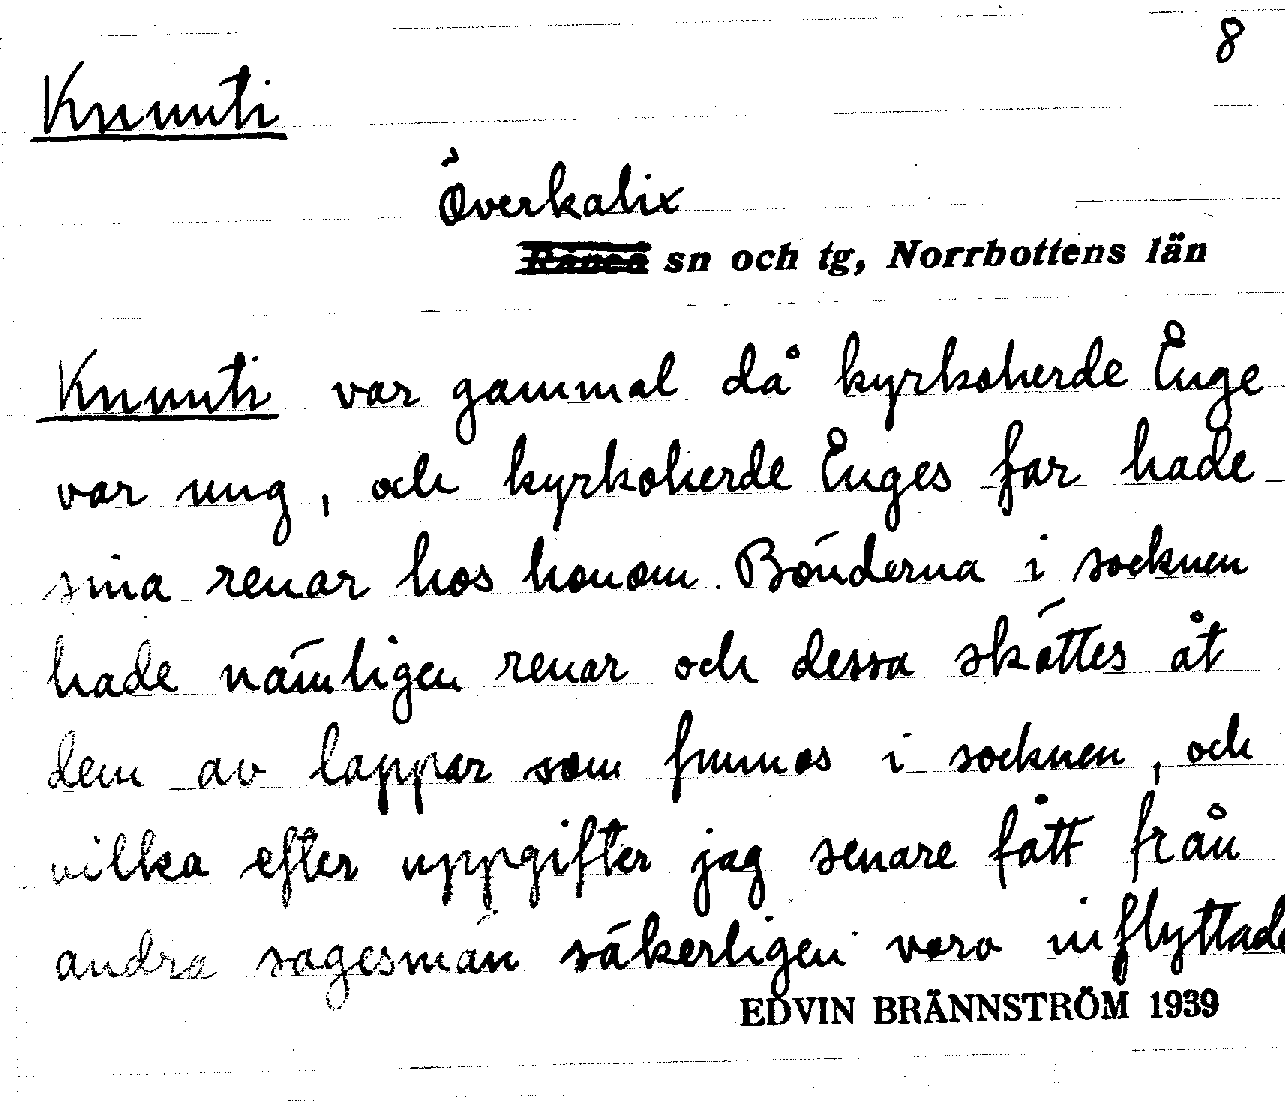 8
Knuuti
Överkalix
Råneå sn och tg, Norrbottens län
Knuuti var gammal då kyrkoherde Enge
var ung, och kyrkoherde Enges far hade
sina renar hos honom. Bönderna i socknen
hade nämligen renar och dessa sköttes åt
dem av lappar som funnos i socknen, och
vilka efter uppgifter jag senare fått från
andra sagesmän säkerligen voro inflyttade
EDVIN BRÄNNSTRÖM 1939